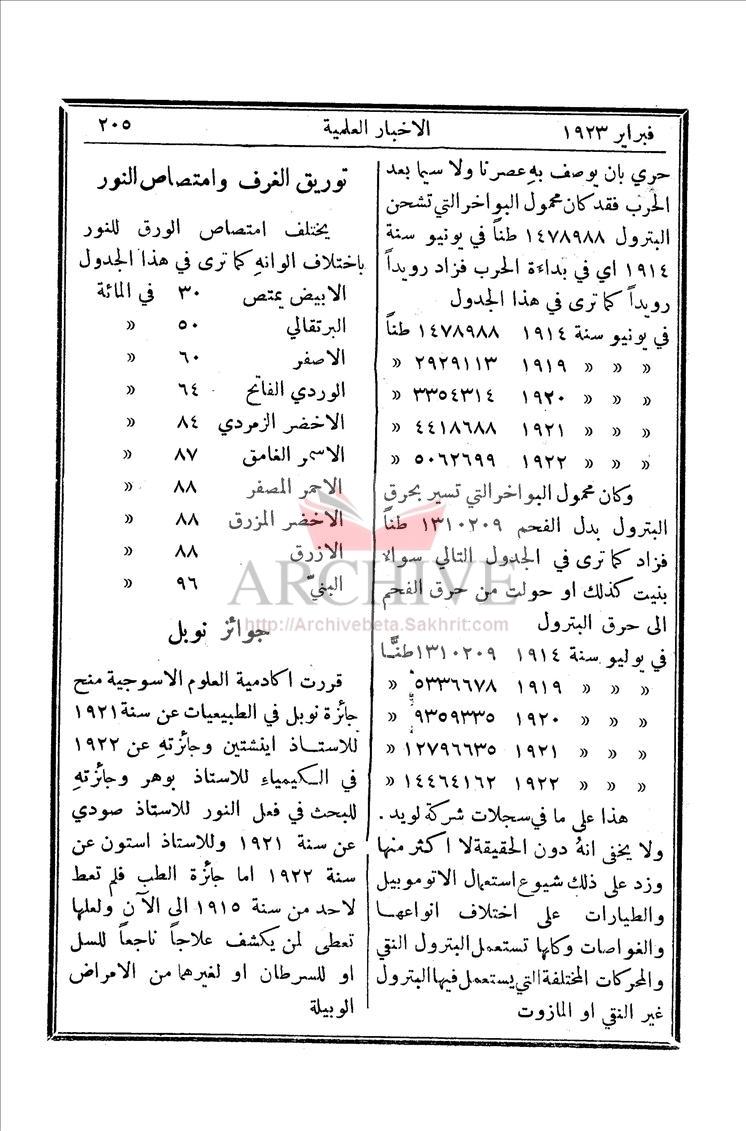 فبراير ١٩٢٣ الاخبار العلمية ٢٠٥
حري بان يوصف بهِ عصرنا ولا سيما بعد
الحرب فقد كان محمول البواخر التي تشحن
البترول ١٤٧٨٩٨٨ طناً في يونيو سنة
١٩١٤ اي في بداءة الحرب فزاد رويداً
رويداً كما ترى في هذا الجدول
في يونيو سنة ١٩١٤ ١٤٧٨٩٨٨ طناً
« « « ١٩١٩ ٢٩٢٩١١٣ «
« « « ١٩٢٠ ٣٣٥٤٣١٤ «
« « « ١٩٢١ ٤٤١٨٦٨٨ «
« « « ١٩٢٢ ٥٠٦٢٦٩٩ «
وكان محمول البواخر التي تسير بحرق
البترول بدل الفحم ١٣١٠٢٠٩ طناً
فزاد كما ترى في الجدول التالي سوالا
بنيت كذلك او حولت من حرق الفحم
الى حرق البترول
في يوليو سنة ١٩١٤ ١٣١٠٢٠٩ طنًّا
« « « ١٩١٩ ٥٣٣٦٦٧٨ «
« « « ١٩٢٠ ٩٣٥٩٣٣٥ «
« « « ١٩٢١ ١٢٧٩٦٦٣٥ «
« « « ١٩٢٢ ١٤٤٦٤١٦٢ «
هذا على ما في سجلات شركة لويد .
ولا يخفى انهُ دون الحقيقة لا اكثر منها
وزد على ذلك شيوع استعمال الاتوموبيل
والطيارات على اختلاف انواعها
والغواصات وكلها تستعمل البترول النقي
والمحركات المختلفة التي يستعمل فيها البترول
غير النقي او المازوت
توريق الغرف وامتصاص النور
يختلف امتصاص الورق للنور
باختلاف الوانهِ كما ترى في هذا الجدول
الابيض يمتص ٣٠ في المائة
البرتقالي ٥٠ «
الاصفر ٦٠ «
الوردي الفاتح ٦٤ «
الاخضر الزمردي ٨٤ «
الاسمر الغامق ٨٧ «
الاحمر المصفر ٨٨ «
الاخضر المزرق ٨٨ «
الازرق ٨٨ «
البنيّ ٩٦ «
جوائز نوبل
قررت اكادمية العلوم الاسوجية منح
جائزة نوبل في الطبيعيات عن سنة ١٩٢١
للاستاذ اينشتين وجائزتهِ عن ١٩٢٢
في الكيمياء للاستاذ بوهر وجائزتهِ
للبحث في فعل النور للاستاذ صودي
عن سنة ١٩٢١ وللاستاذ استون عن
سنة ١٩٢٢ اما جائزة الطب فلم تعط
لاحد من سنة ١٩١٥ الى الآن ولعلها
تعطى لمن يكشف علاجاً ناجعاً للسل
او للسرطان او لغيرهما من الامراض
الوبيلة
ARCHIVE
http://Archivebeta.Sakhrit.com